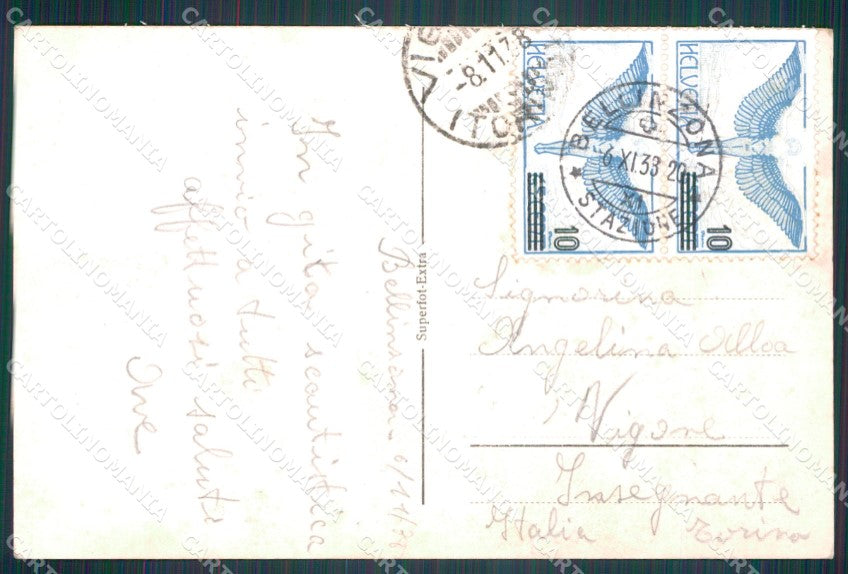 In gita scautistica
invio a tutti
affettuosi saluti
Ave
Bellinzona - 6/11/38
Superfot-Extra
HELVETIA
10
HELVETIA
10
BELLINZONA
6 XI.38 20
XI
STAZIONE
-8.11.38
Signorina
Angelina Alloa
Vigone
Insegnante
Italia Torino
CARTOLINOMANIA